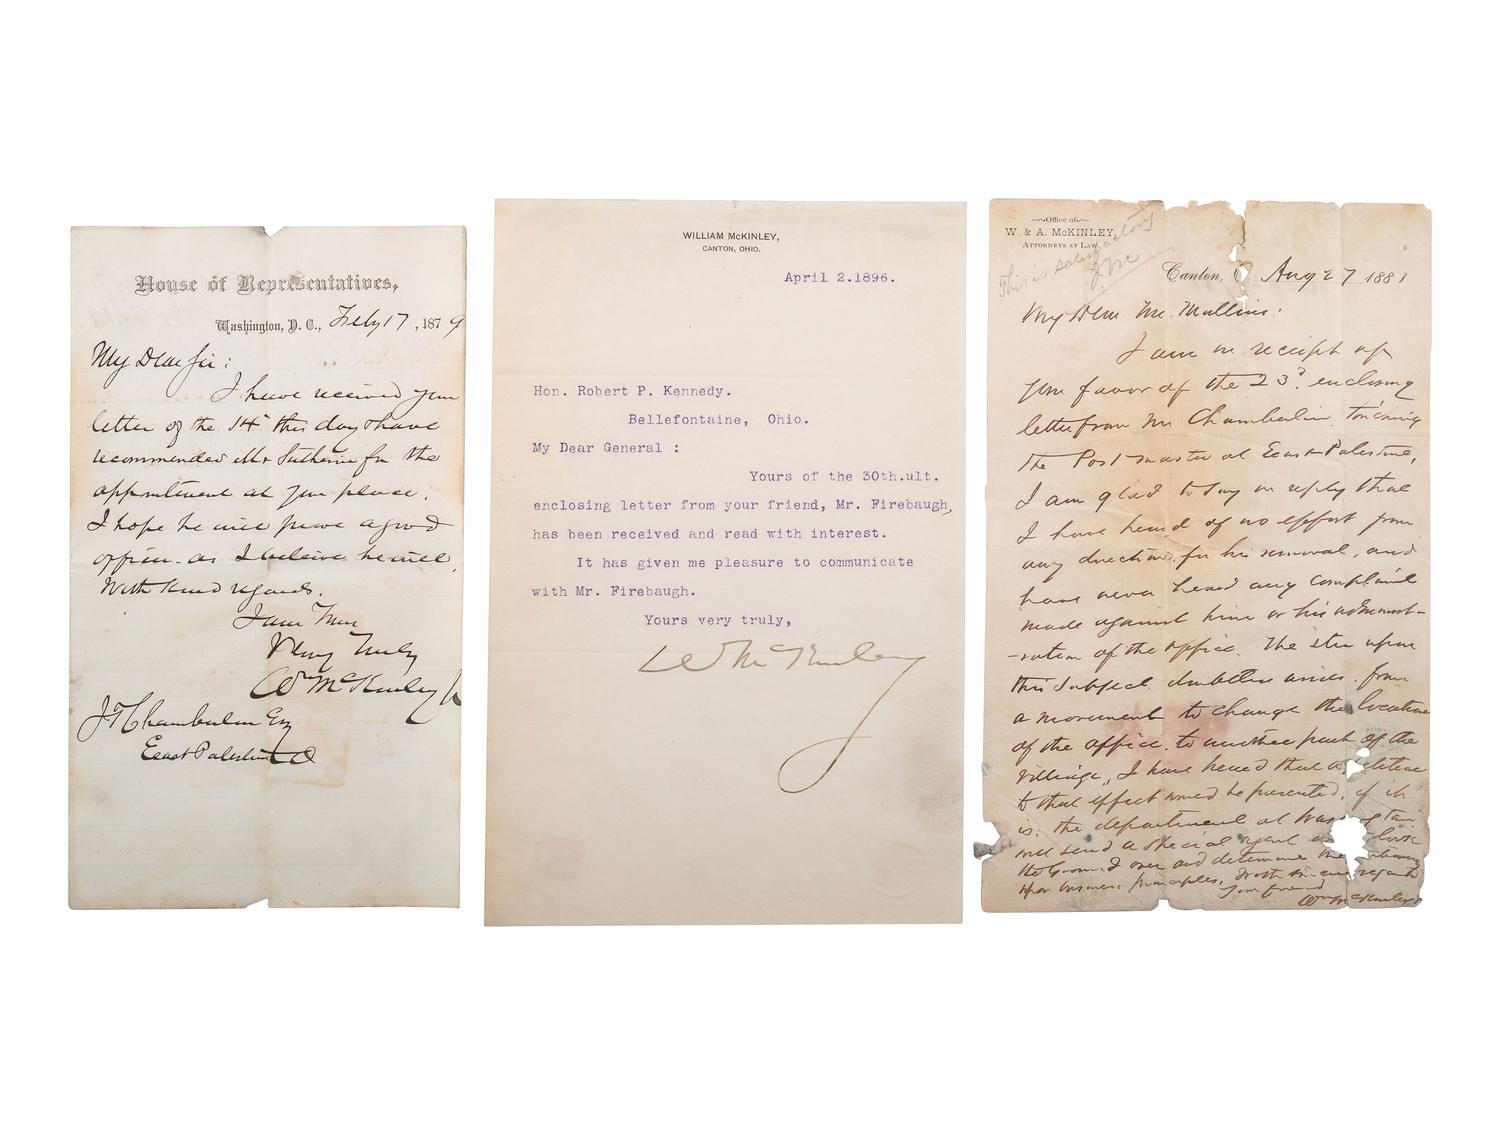 House of Representatives,
Washington, D. C., Feby 17, 1879
My Dear Sir:
I have received your
letter of the 14th this day & have
recommended Mr for the
appointment at your place.
I hope he will prove a good
officer as I believe he will,
With kind regards.
I am Mr
Very Truly
Wm McKinley Jr
J T Chamberlin Esq
East Palestine O
WILLIAM McKINLEY,
CANTON, OHIO.
April 2.1896.
Hon. Robert P. Kennedy.
Bellefontaine, Ohio.
My Dear General :
Yours of the 30th.ult.
enclosing letter from your friend, Mr. Firebaugh,
has been received and read with interest.
It has given me pleasure to communicate
with Mr. Firebaugh.
Yours very truly,
W McKinley
Office of
W. & A. McKINLEY,
ATTORNEYS AT LAW.
This is satisfactory
J. M
Canton, O. Aug 27 1881
My Dear Mr Mullins:
I am in receipt of
your favor of the 23d. enclosing
letter from Mr Chamberlin touching
the Post master at East Palestine,
I am glad to say in reply that
I have heard of no effort from
any direction for his removal, and
have never heard any complaint
made against him or his administ-
-ration of the office. The stir upon
this subject doubtless arises from
a movement to change the location
of the office to another part of the
village, I have heard that a petition
to that effect would be presented, if it
is, the department at Washington
will send a special agent to look
the Ground over and determine the
upon business principles, With sincere regards
Your friend
Wm McKinley Jr